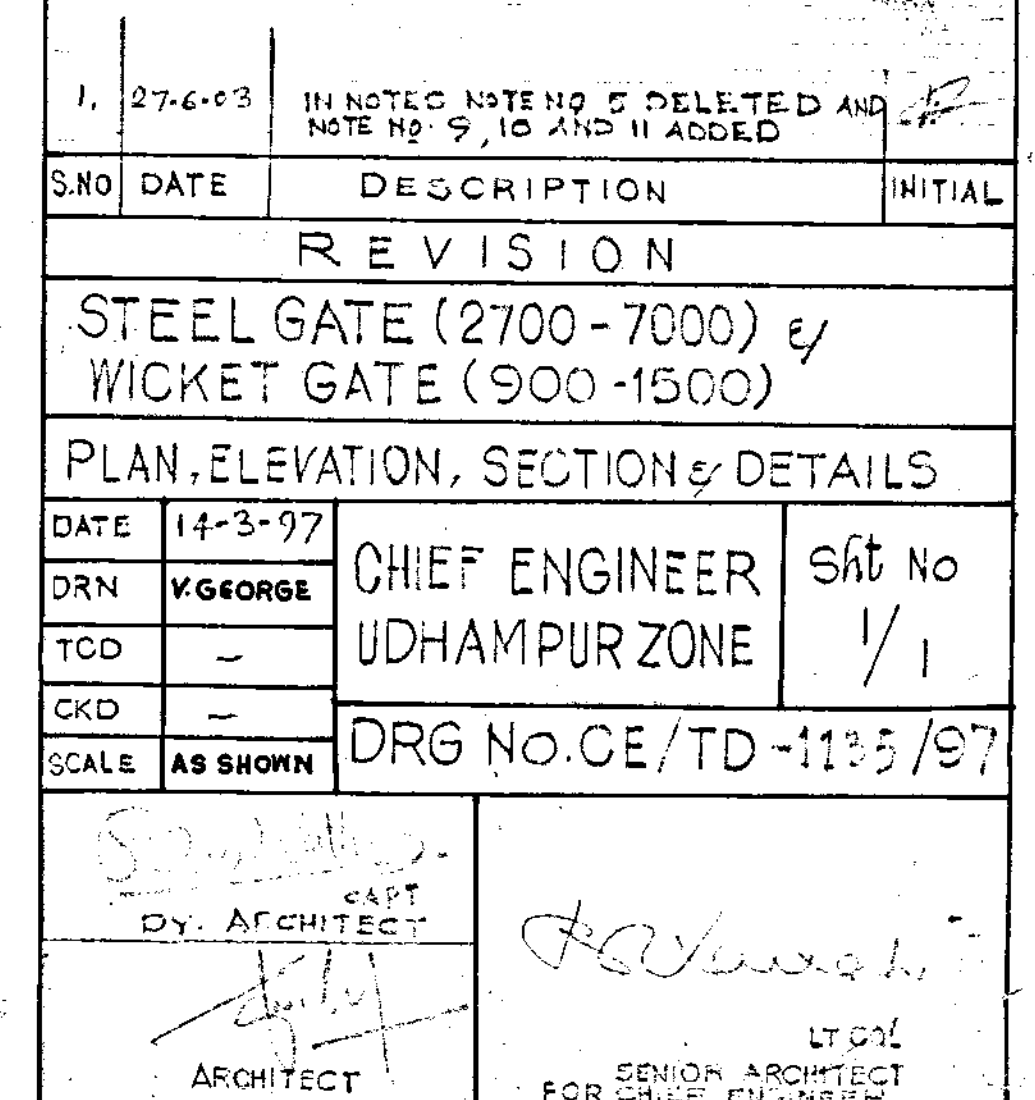 1. 27-6-03 IN NOTES NOTE NO 5 DELETED AND
NOTE NO. 9, 10 AND 11 ADDED
S.NO DATE DESCRIPTION INITIAL
REVISION
STEEL GATE (2700 - 7000) &
WICKET GATE (900 - 1500)
PLAN, ELEVATION, SECTION & DETAILS
DATE 14-3-97
DRN V. GEORGE
TCD –
CKD –
SCALE AS SHOWN
CHIEF ENGINEER
UDHAMPUR ZONE
Sht No
1/1
DRG No. CE/TD -1135/97
CAPT
DY. ARCHITECT
ARCHITECT
LT COL
SENIOR ARCHITECT
FOR CHIEF ENGINEER